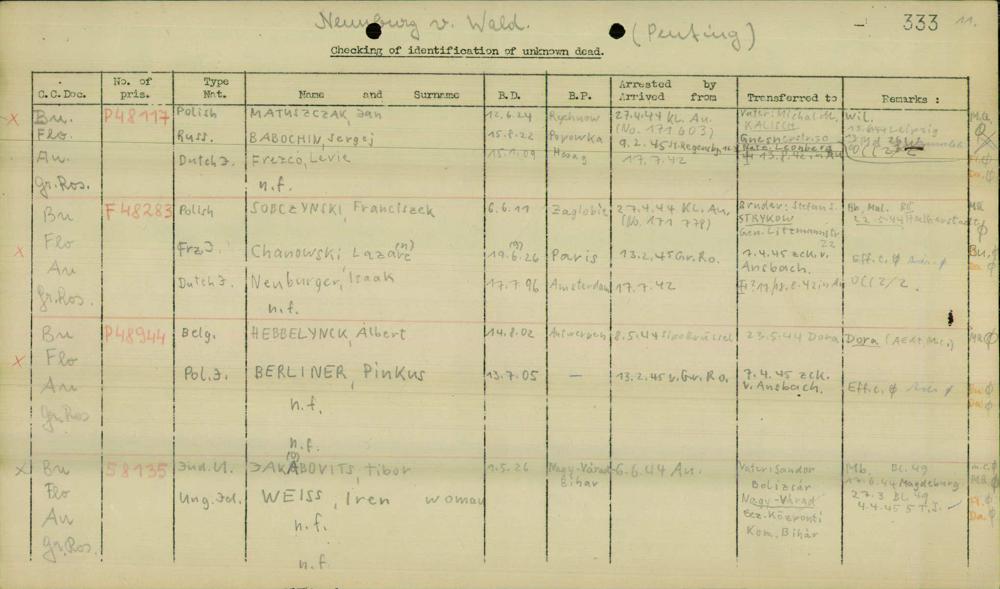 Neunburg v. Wald. (Penting) - 333 11.
Checking of identification of unknown dead.
C.C.Doc. No. of pris. Type Nat. Name and Surname B.D. B.P. Arrested by Arrived from Transferred to Remarks :
x Bu. P48117 Polish MATUSZCZAK Jan 12.6.24 Rychnow 27.4.44 KL. Au. (No. 171 603) Vater: Michal M. KALISCH Wil.
Flo. Russ. BABOCHIN, Sergej 15.8.22 Popowka 9.2.45 Leonberg
Au. Dutch J. Frezco, Levie 15.1.09 Haag 17.7.42
Gr.Ros. n.f.
Bu F48283 Polish SOBCZYNSKI, Franciszek 6.6.11 Zaglobie 27.4.44 KL. Au. (No. 171 778) Bruder: Stefan S. STRYKOW Gen. Litzmannstr 22
x Flo Frz J. Chanowski Lazare (n) 19.6.26 (9) Paris 13.2.45 Gr. Ro. 7.4.45 zck. v. Ansbach. Eff.c. ø
Au Dutch J. Neuburger, Isaak 17.7.96 Amsterdam 17.7.42 OCC 2/2.
Gr.Ros. n.f.
Bu P48944 Belg. HEBBELYNCK, Albert 14.8.02 Antwerpen 8.5.44 Sipo Brüssel 23.5.44 Dora Dora
x Flo Pol.J. BERLINER, Pinkus 13.7.05 - 13.2.45 v. Gr. Ro. 7.4.45 zck. v. Ansbach. Eff.c. ø
Au n.f.
Gr.Ros n.f.
x Bu 58135 Jud.U. JAKABOVITS, Tibor (0) 1.5.26 Nagy-Várad Bihar 6.6.44 Au. Vater: Sandor Bolizsár Nagy-Várad Mb. Bl. 49 17.6.44 Magdeburg 27.3 Bl 49
Flo Ung. Jd. WEISS, Iren woman Kom. Bihár
Au n.f.
Gr.Ros. n.f.